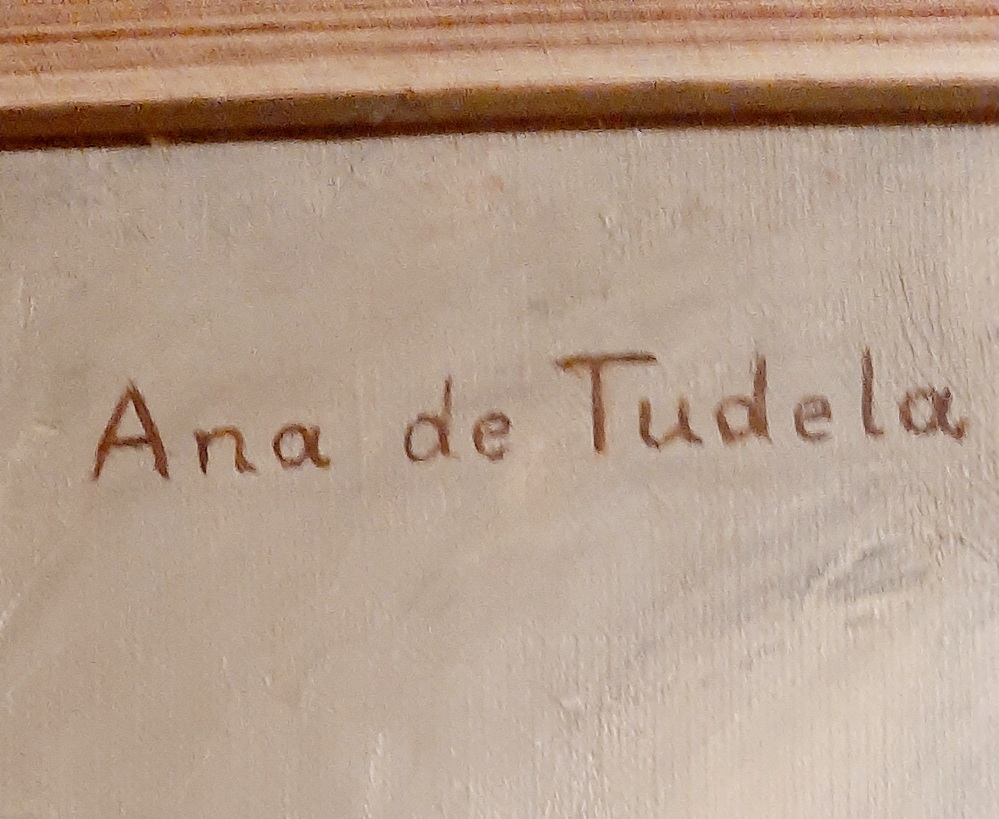 Ana de Tudela